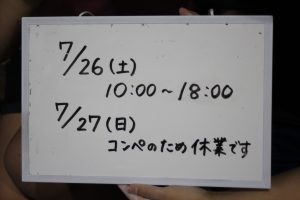 7/26(土)
10:00~18:00
7/27(日)
コンペのため休業です